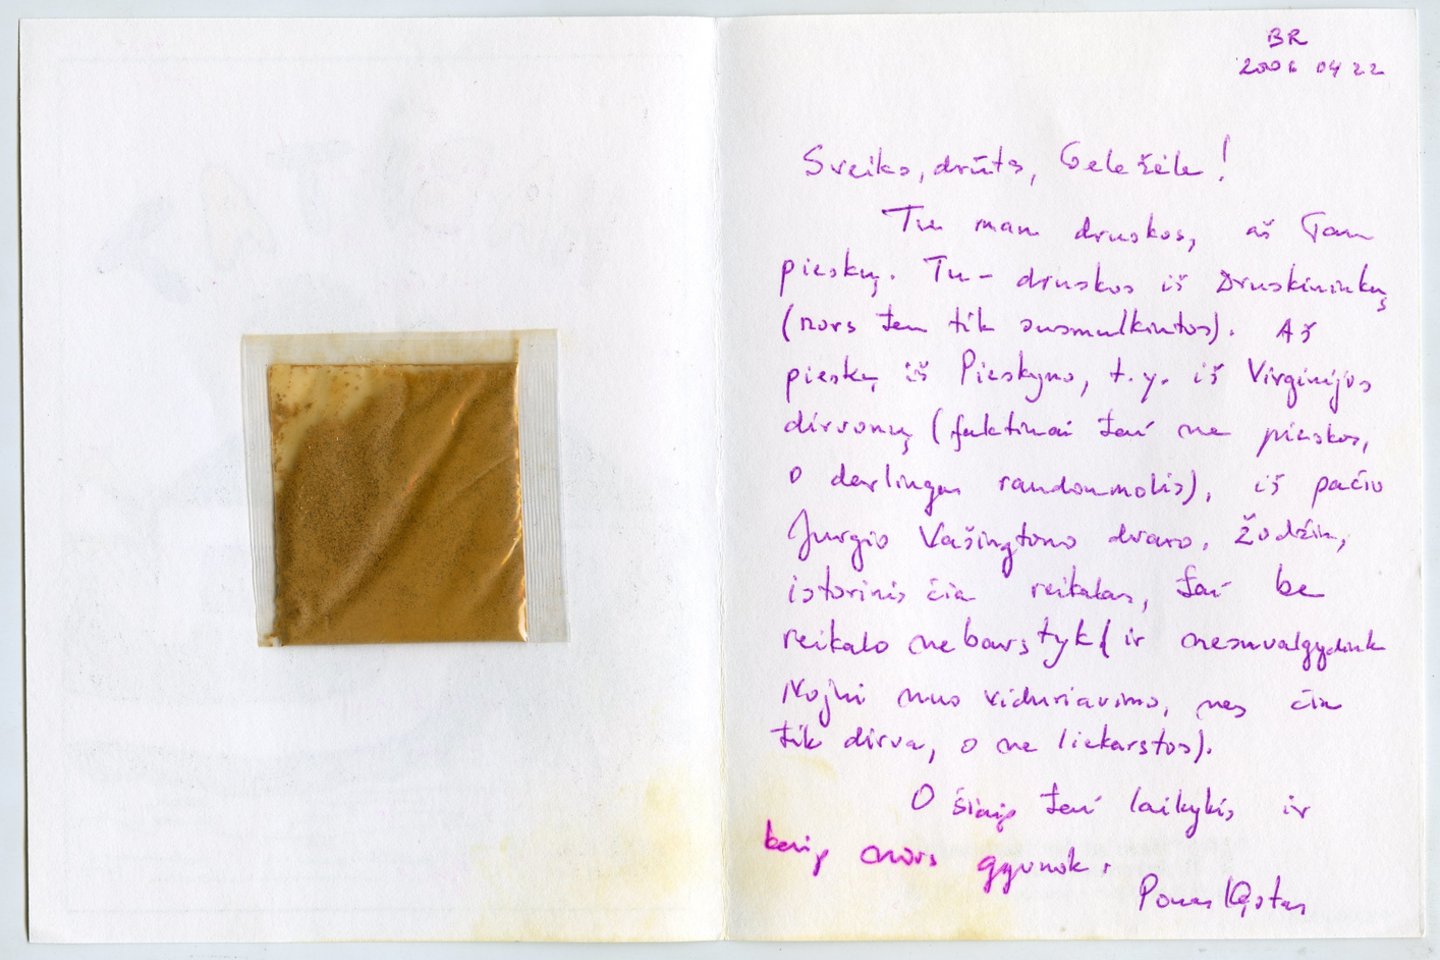 BR
2006 04 22
Sveiks, drūts, Geležėle!
Tu man druskos, aš Tau
pieskų. Tu – druskos iš Druskininkų
(nors ten tik susmulkintos). Aš
pieskų iš Pieskyno, t.y. iš Virginijos
dirvonų (faktinai tai ne pieskos,
o derlingas raudonmolis), iš pačio
Jurgio Vašingtono dvaro. Žodžiu,
istorinis čia reikalas, tai be
reikalo nebarstyk (ir nesuvalgydink
nuo viduriavimo, nes čia
tik dirva, o ne liekarstos).
O šiaip tai laikykis ir
kaip nors gyvunok.
Ponas Kęstas